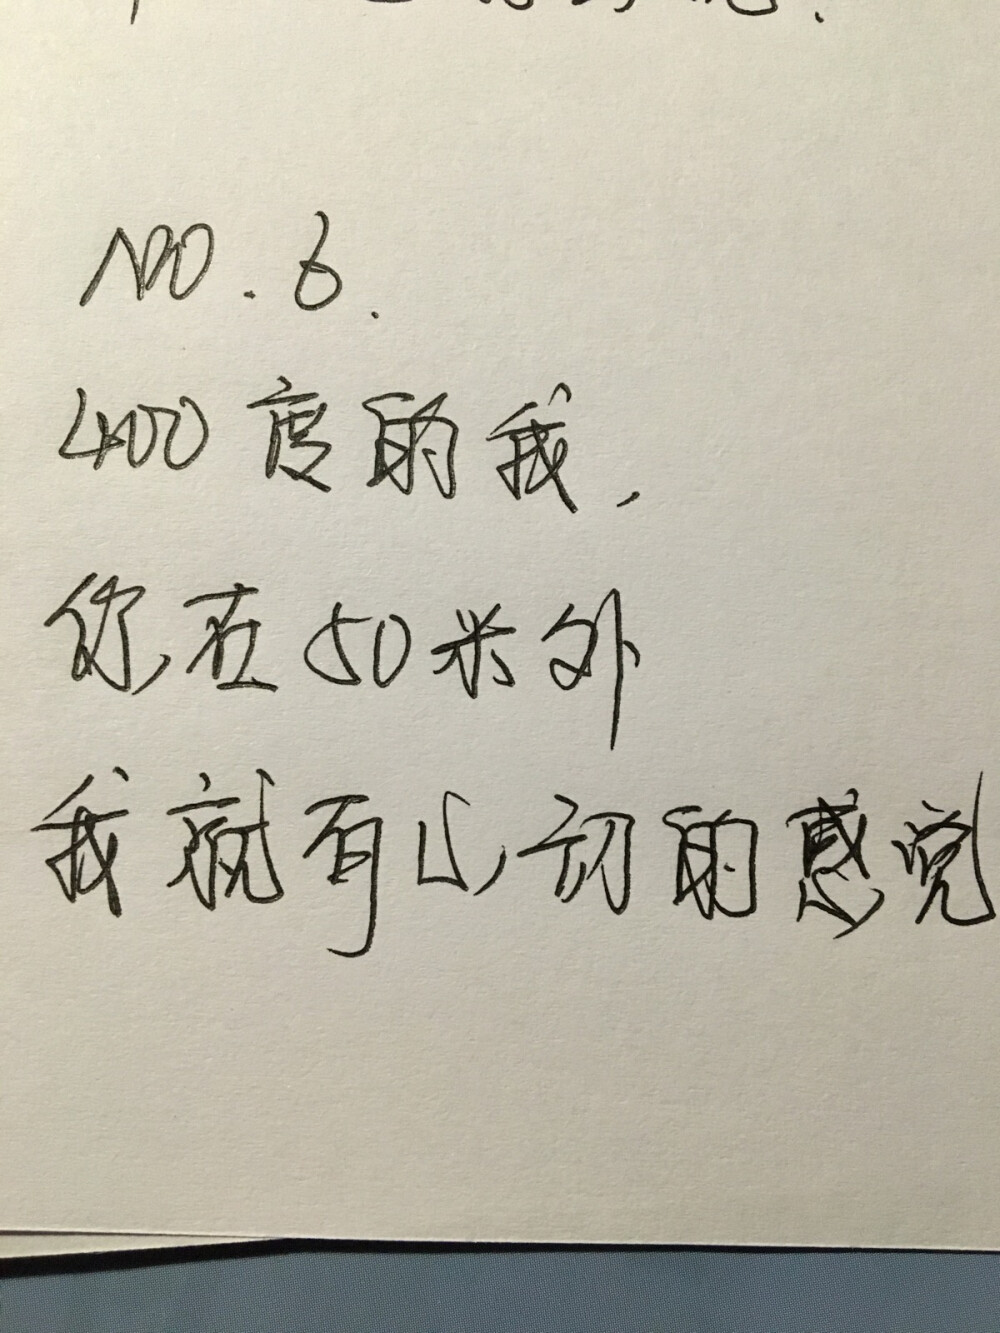 NO.6.
400度的我,
你在50米外
我就有心动的感觉